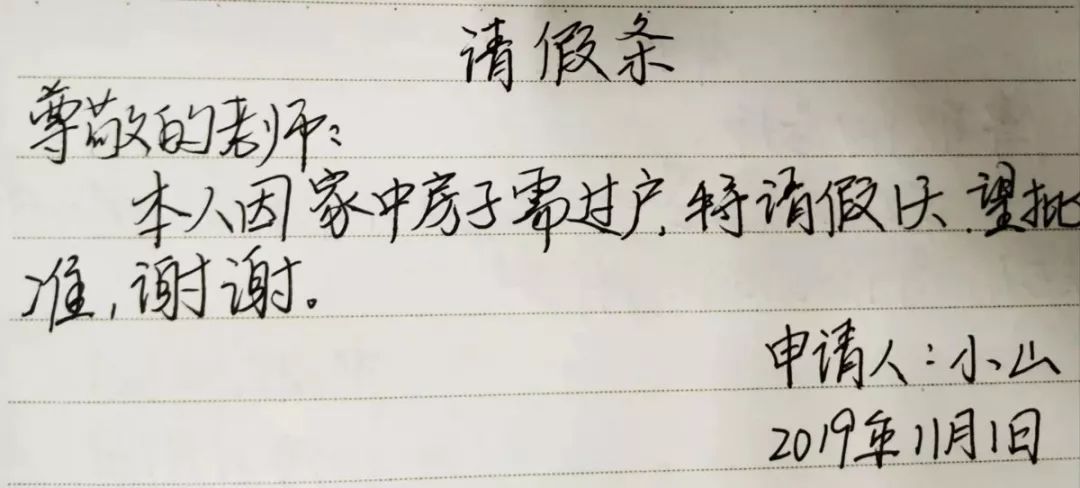 请假条
尊敬的老师:
本人因家中房子需过户,特请假1天,望批
准,谢谢。
申请人:小山
2019年11月1日